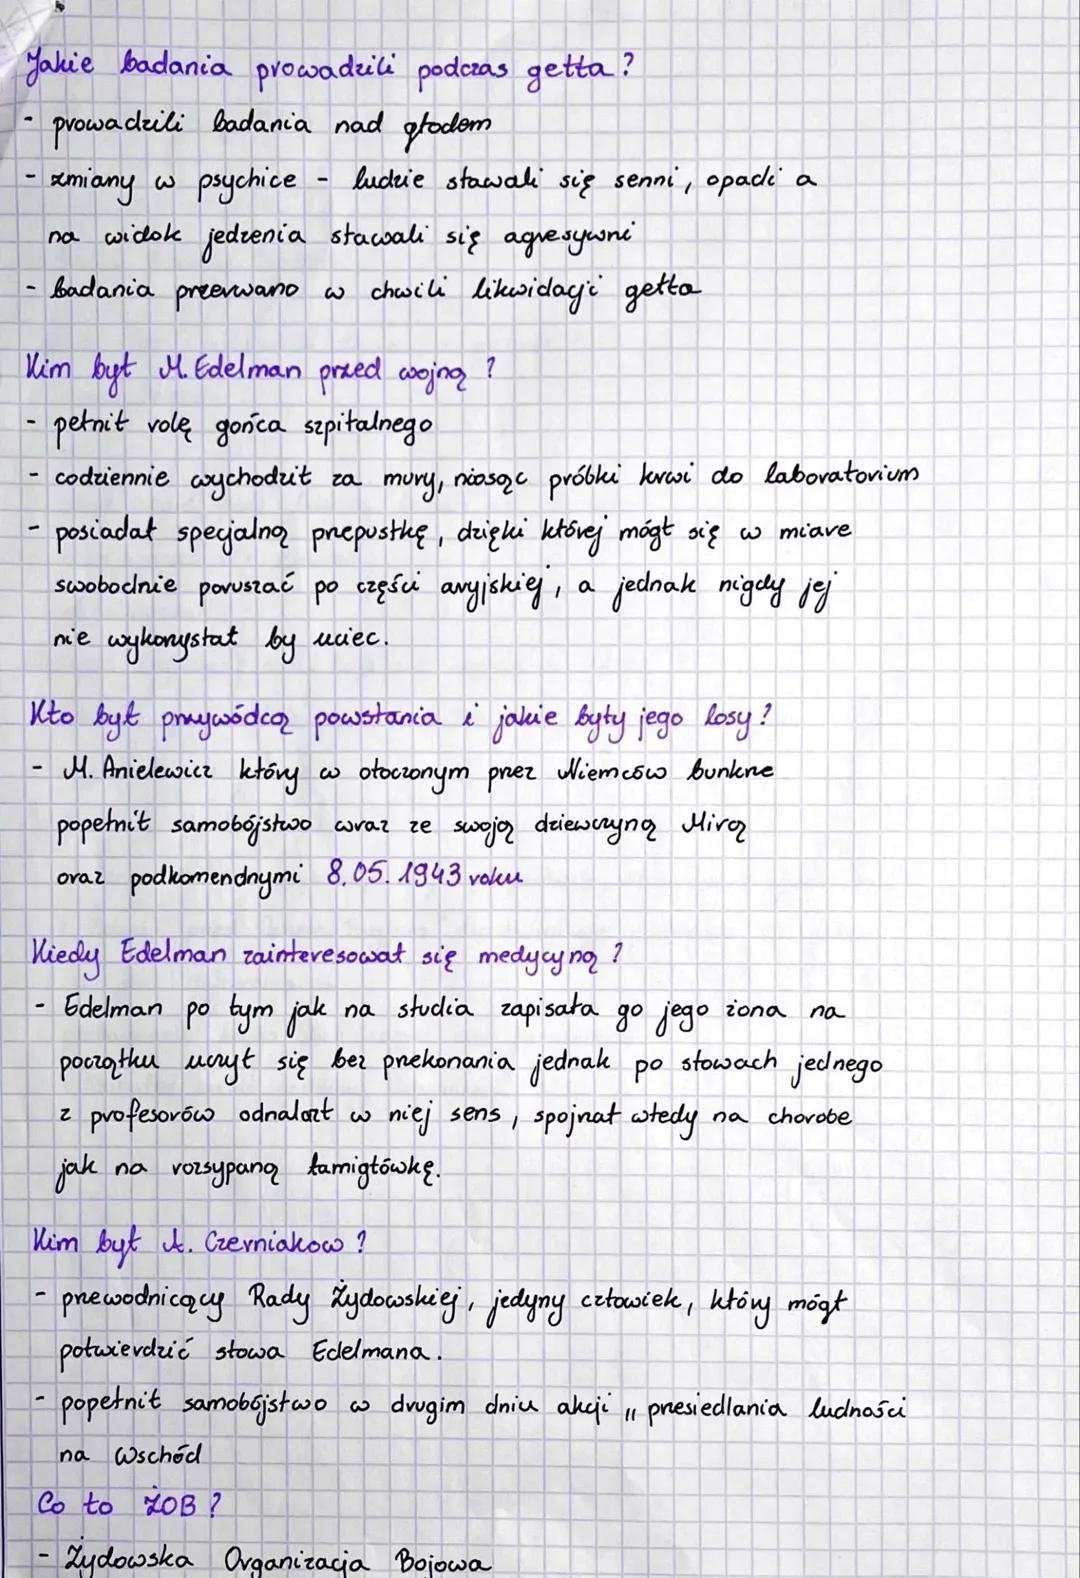 Jakie badania prowadzili podczas getta?
- prowadzili badania nad głodem
- zmiany w psychice - ludzie stawali się senni, opadli a
na widok jedzenia stawali się agresywni
- badania przerwano w chwili likwidacji getta
Kim był M. Edelman przed wojną?
- pełnił rolę gońca szpitalnego
- codziennie wychodził za mury, niosąc próbki krwi do laboratorium
- posiadał specjalną przepustkę, dzięki której mógł się w miare
swobodnie poruszać po części aryjskiej, a jednak nigdy jej
nie wykorzystał by uciec.
Kto był przywódcą powstania i jakie były jego losy?
- M. Anielewicz który w otoczonym przez Niemców bunkrze
popełnił samobójstwo wraz ze swoją dziewczyną Mirą
oraz podkomendnymi 8.05.1943 roku
Kiedy Edelman zainteresował się medycyną?
- Edelman po tym jak na studia zapisała go jego żona na
początku uczył się bez przekonania jednak po słowach jednego
z profesorów odnalazł w niej sens, spojrzał wtedy na chorobe
jak na rozsypaną łamigłówkę.
Kim był A. Czerniakow?
- przewodniczący Rady Żydowskiej, jedyny człowiek, który mógł
potwierdzić słowa Edelmana.
- popełnił samobójstwo w drugim dniu akcji „przesiedlania ludności
na Wschód
Co to ŻOB?
- Żydowska Organizacja Bojowa